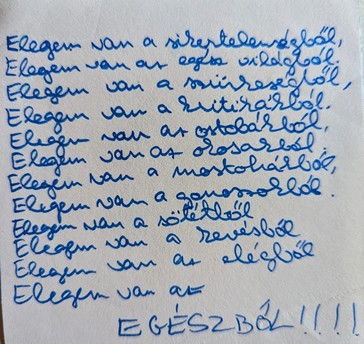 Elegem van a sikertelenségből,
Elegem van az egész világból.
Elegem van a szürkeségből,
Elegem van a kritikákból.
Elegem van az ostobákból,
Elegem van az okosakból.
Elegem van a mostohákból,
Elegem van a gonoszokból.
Elegem van a sötétből
Elegem van a kevésből
Elegem van az elégből
Elegem van az
EGÉSZBŐL!!!!